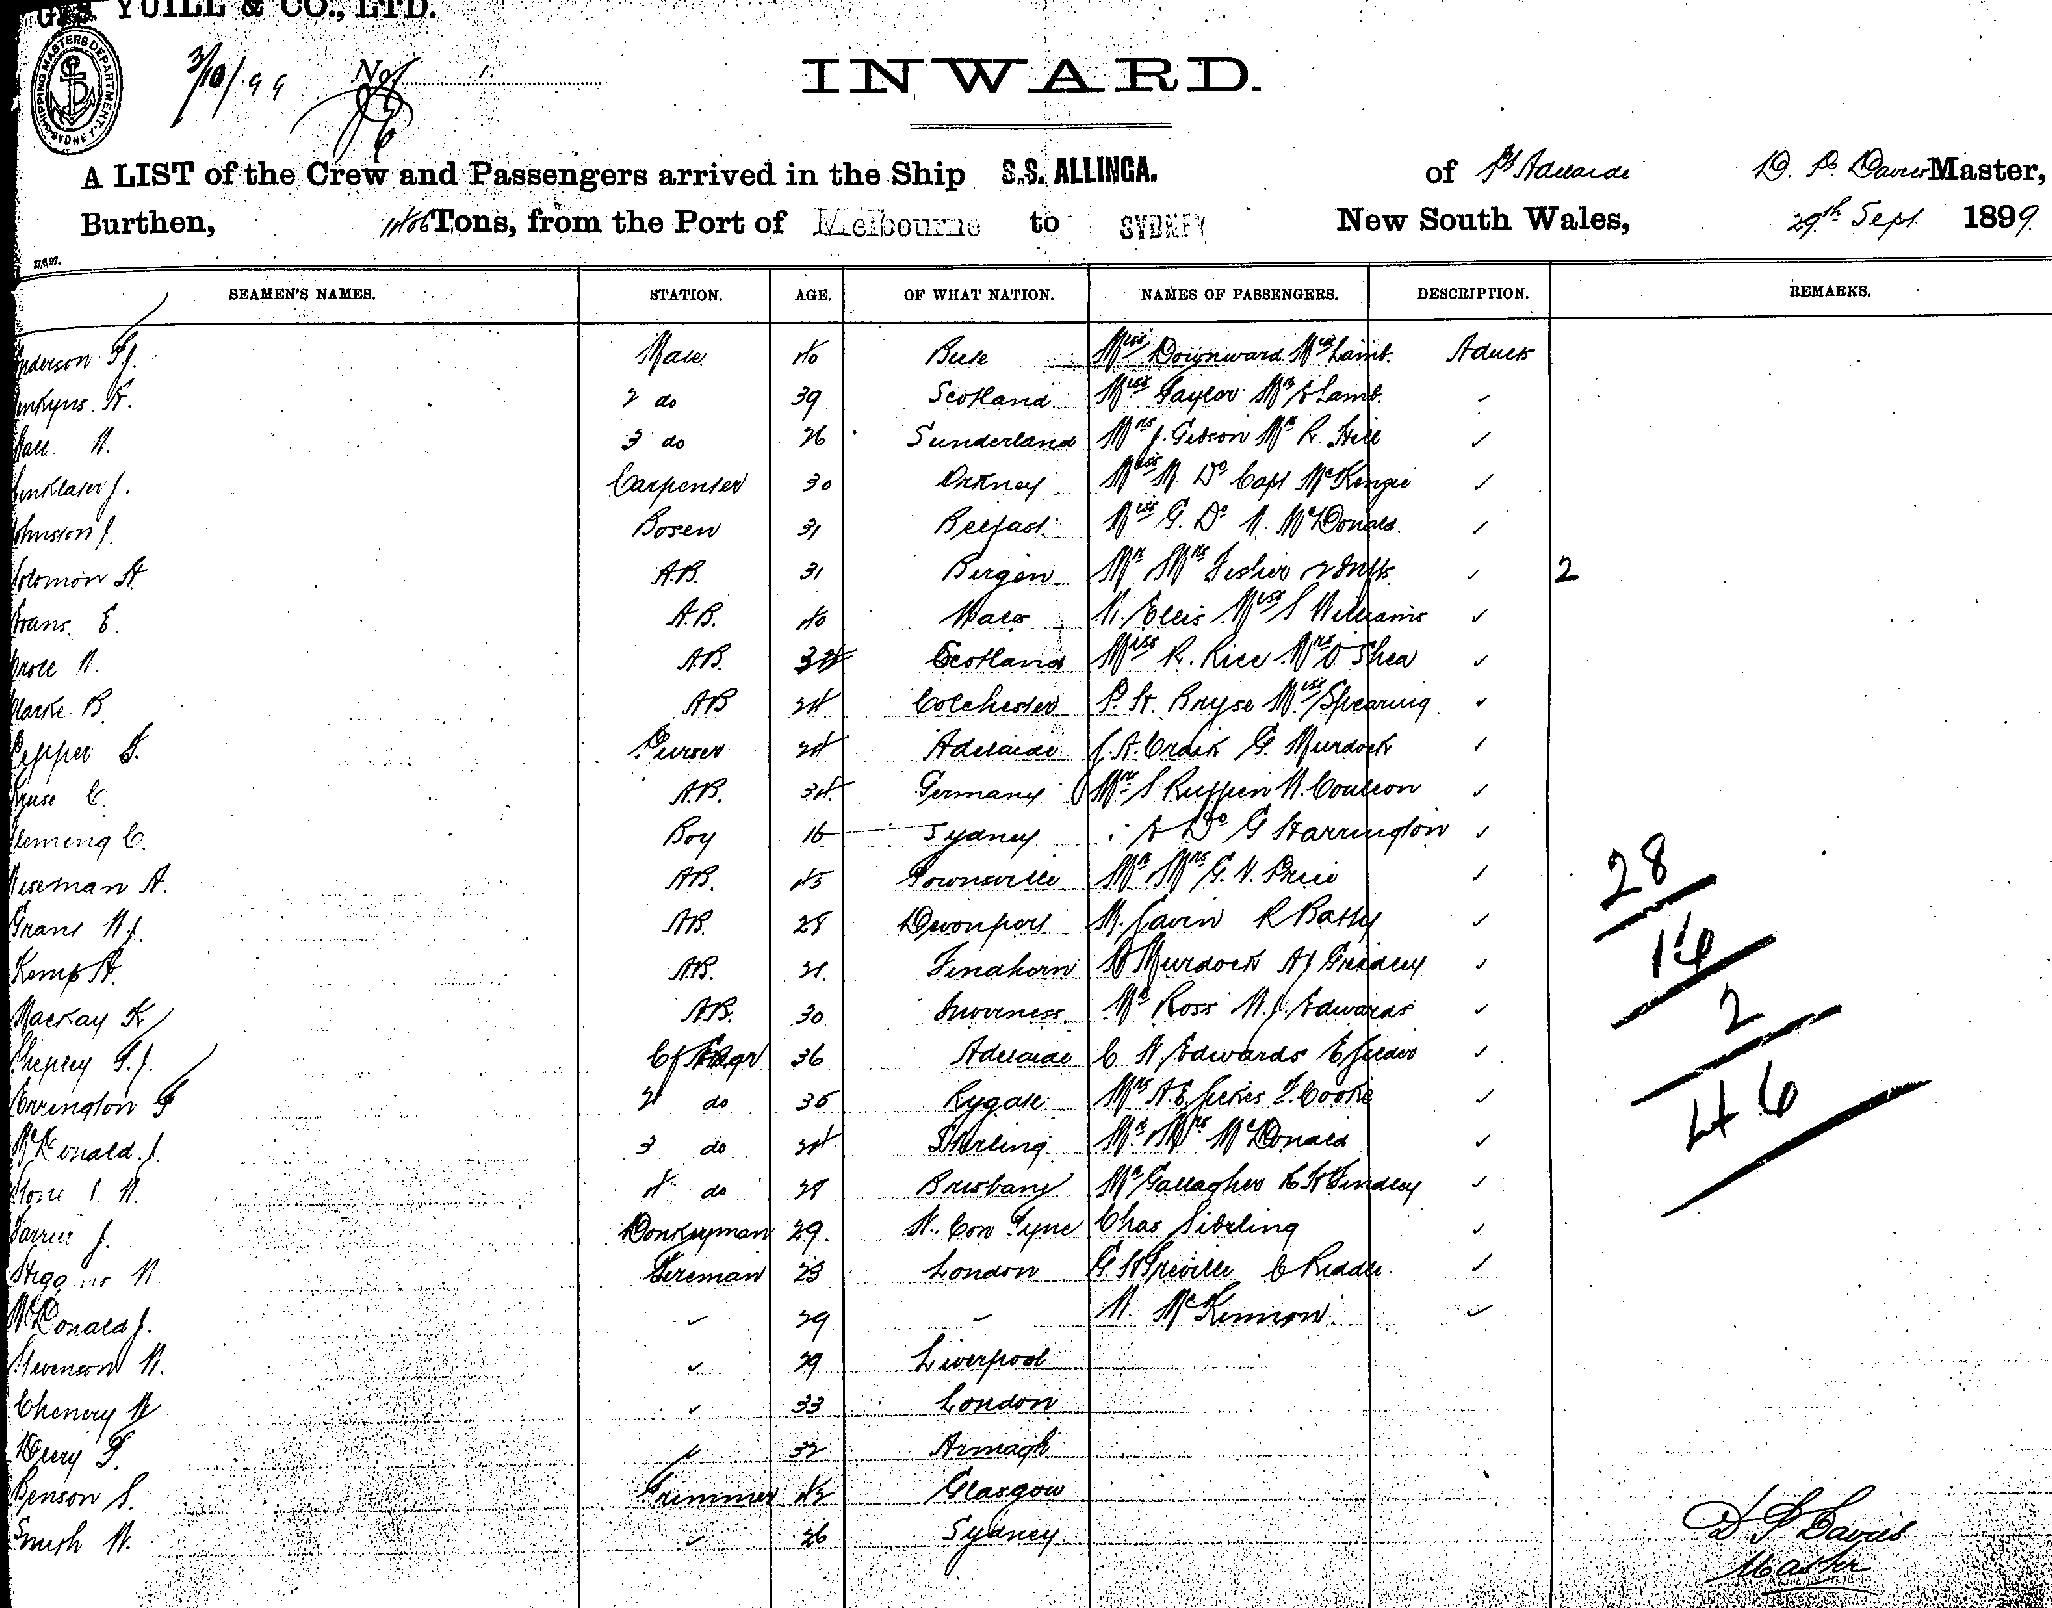 YUILL & CO., LTD.
SHIPPING MASTERS DEPARTMENT SYDNEY
3/10/99 No.
INWARD.
A LIST of the Crew and Passengers arrived in the Ship S.S. ALLINGA. of Pt Adelaide D. P. Davies Master,
Burthen, Tons, from the Port of Melbourne to SYDNEY New South Wales, 29th Sept 1899
SEAMEN'S NAMES. STATION. AGE. OF WHAT NATION. NAMES OF PASSENGERS. DESCRIPTION. REMARKS.
nderson F J. Mate 40 Bute Miss Downward Miss Lamb. Adults
enkyns. 2 do 39 Scotland Miss Taylor Mr Lamb.
W. 3 do 26 Sunderland Mrs J. Gibson Mr R. Hill
J. Carpenter 30 Orkney Miss M. Do Capt McKenzie
ohnston J. Bosen 31 Belfast Miss G. Do N. McDonald.
olomon A. A.B. 31 Bergen Mr Mrs Fisher 2 Infts. 2
vans. E. A.B. 40 Wales W. Ellis Miss S Williams
W. A.B. Scotland Miss R. Rice Mrs O'Shea
larke B. AB 24 Colchester P. H. Bryse Miss Spearing
Pepper Purser 24 Adelaide J. A. Craik G. Murdock
ruse C. A.B. 34 Germany Mrs S Ruppin W. Coulson
leming C. Boy 16 Sydney Do G Harrington
iseman A. AB. 45 Townsville Mr Mrs G. W. Price
Grant W J. AB. 28 Devonport W. Gavin R Batty
Kemp A. AB. 21. Findhorn Murdock A J Grindley
Mackay K AB. 30 Inverness Mr Ross W J Edwards
hepley T. J. Cf Engr 36 Adelaide C. A. Edwards E
errington F 2 do 35 Rygate Mrs A. E. Jukes F. Cooke
McDonald. J. 3 do 24 Stirling Mr Mrs McDonald
W. 4 do 28 Brisbany Mr Gallagher Findley
Farrer J. Donkeyman 29. N. Con Tyne Chas Siberling
W. Fireman 23 London G. H. Greville C Riddle.
McDonald J. 29 W. McKinnon.
Stevenson W. 29 Liverpool
Chenery W 33 London
Deery F. 32 Armagh
Benson S. Trimmer 42 Glasgow
Smith W. 26 Sydney
28
16
2
46
D P Davies
Master